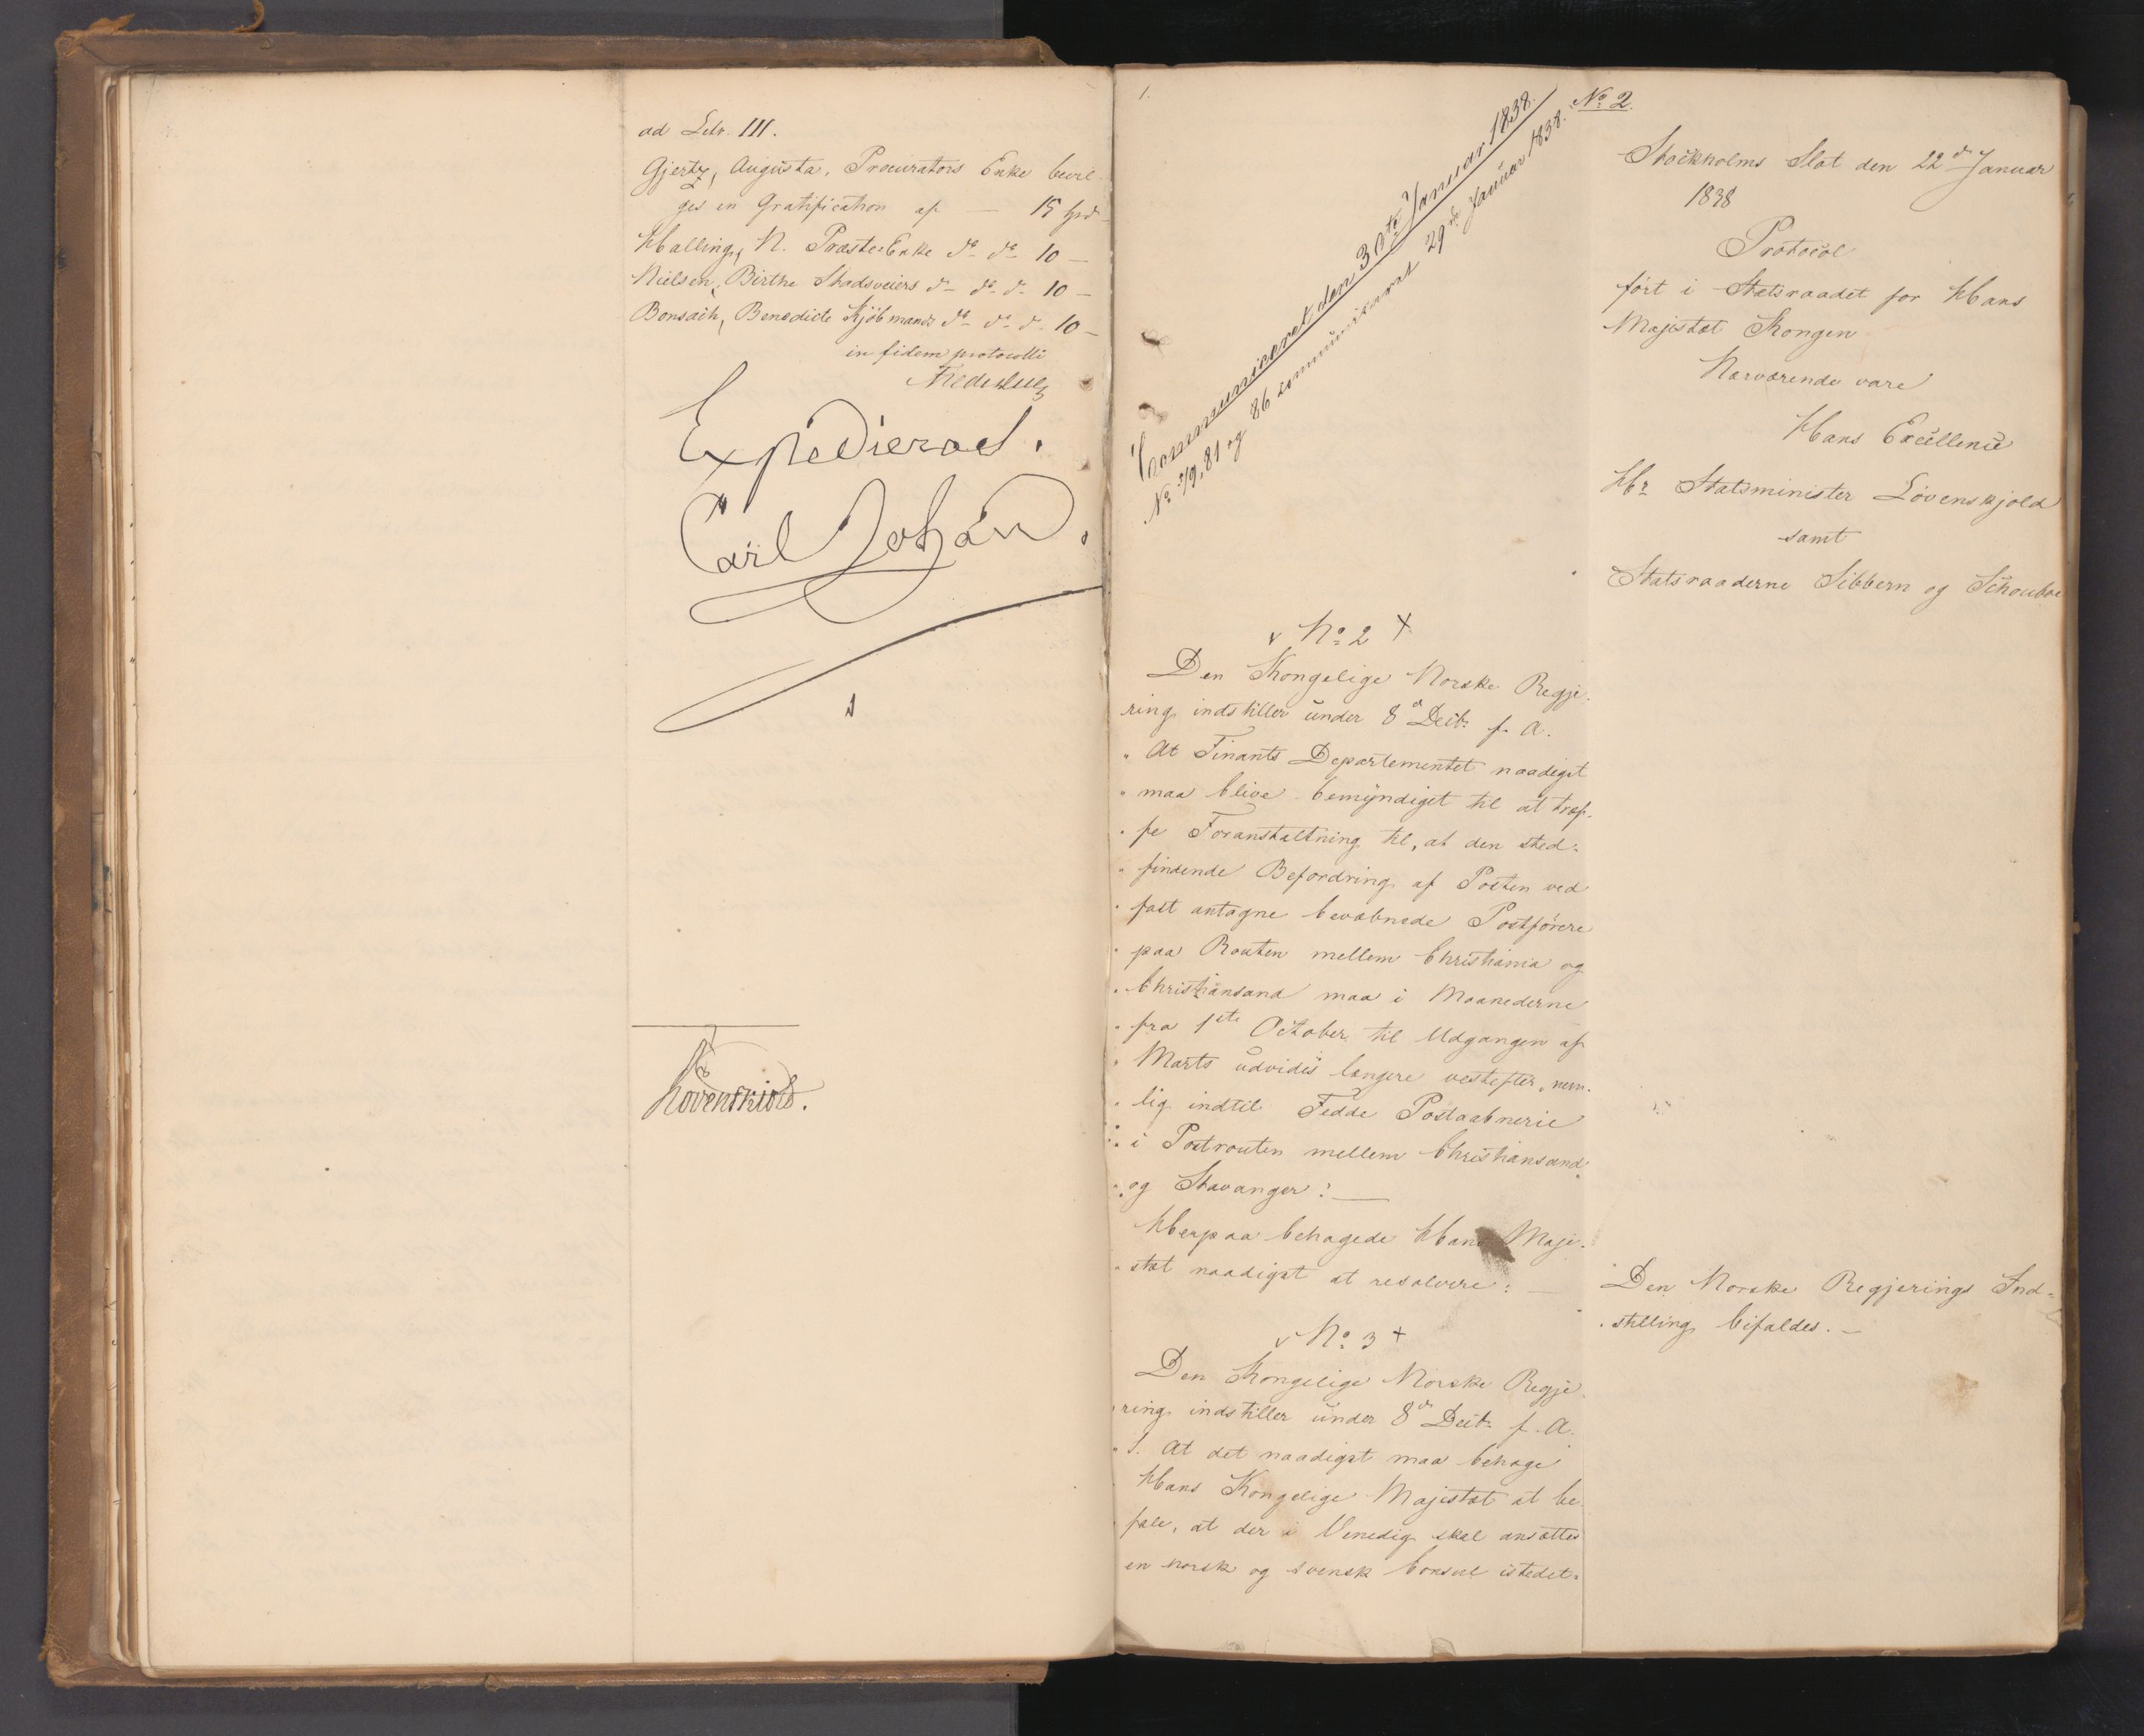 ad Litr. III.
Gjertz, Augusta, Procurators Enke bevil-
ges en Gratification af — 15 Spd
Halling, N. Præste-Enke do do 10 —
Nielsen, Birthe Stadsveiers do do do 10 —
Bonsach, Benedicte Kjøbmands do do do 10 —
in fidem protocolli
Expedieras.
Carl Johan.
Løvenskiold.
1.
Communiceret den 30te Januar 1838.
No 79, 81 og 86 communiceret 29de Januar 1838.
No 2.
Stockholms Slot den 22de Januar
1838
Protocol
ført i Statsraadet for Hans
Majestæt Kongen
Nærværende vare
Hans Excellence
Hr Statsminister Løvenskjold
samt
Statsraaderne Sibbern og Schouboe
No 2
Den Kongelige Norske Regje-
ring indstiller under 8de Decbr f. A.
" At Finants Departementet naadigst
" maa blive bemyndiget til at træf-
" fe Foranstaltning til, at den sted-
" findende Befordring af Posten ved
" fast antagne bevæbnede Postførere
" paa Routen mellem Christiania og
" Christiansand maa i Maanederne
" fra 1ste October til Udgangen af
" Marts udvides længere vestefter, nem-
" lig indtil Fedde Postaabnerie
" i Postrouten mellem Christiansand
" og Stavanger: —
Herpaa behagede Hans Maje-
stæt naadigst at resolvere: —
Den Norske Regjerings Ind-
stilling bifaldes. —
No 3
Den Kongelige Norske Regje-
ring indstiller under 8de Decbr f. A.
" 1. At det naadigst maa behage
Hans Kongelige Majestæt at be-
fale, at der i Venedig skal ansættes
en norsk og svensk Consul istedet-